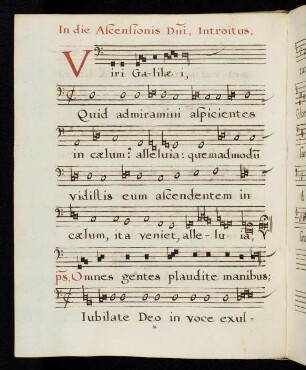 In die Ascensionis Dñi, Introitus.
Viri Galilæi,
Quid admiramini aspicientes
in cælum? alleluia: quemadmodũ
vidistis eum ascendentem in
cælum, ita veniet, alle-lu-ia,
ps. Omnes gentes plaudite manibus;
Iubilate Deo in voce exul-